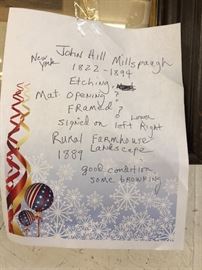 New York
John Hill Millspaugh
1822-1894
Etching
Mat Opening ?
Framed ?
Signed on Lower left Right
Rural Farmhouse
Landscape
1889
good condition
some browning